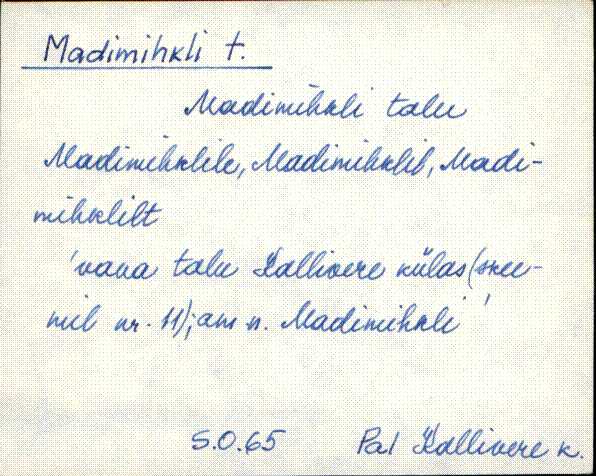 Madimihkli t.
Madimihkli talu
Madimihklile, Madimihklil, Madi-
mihklilt
'vana talu Kallivere külas (skee-
mil nr. 11); am n. Madimihkli'
S.O.65 Pal Kallivere k.